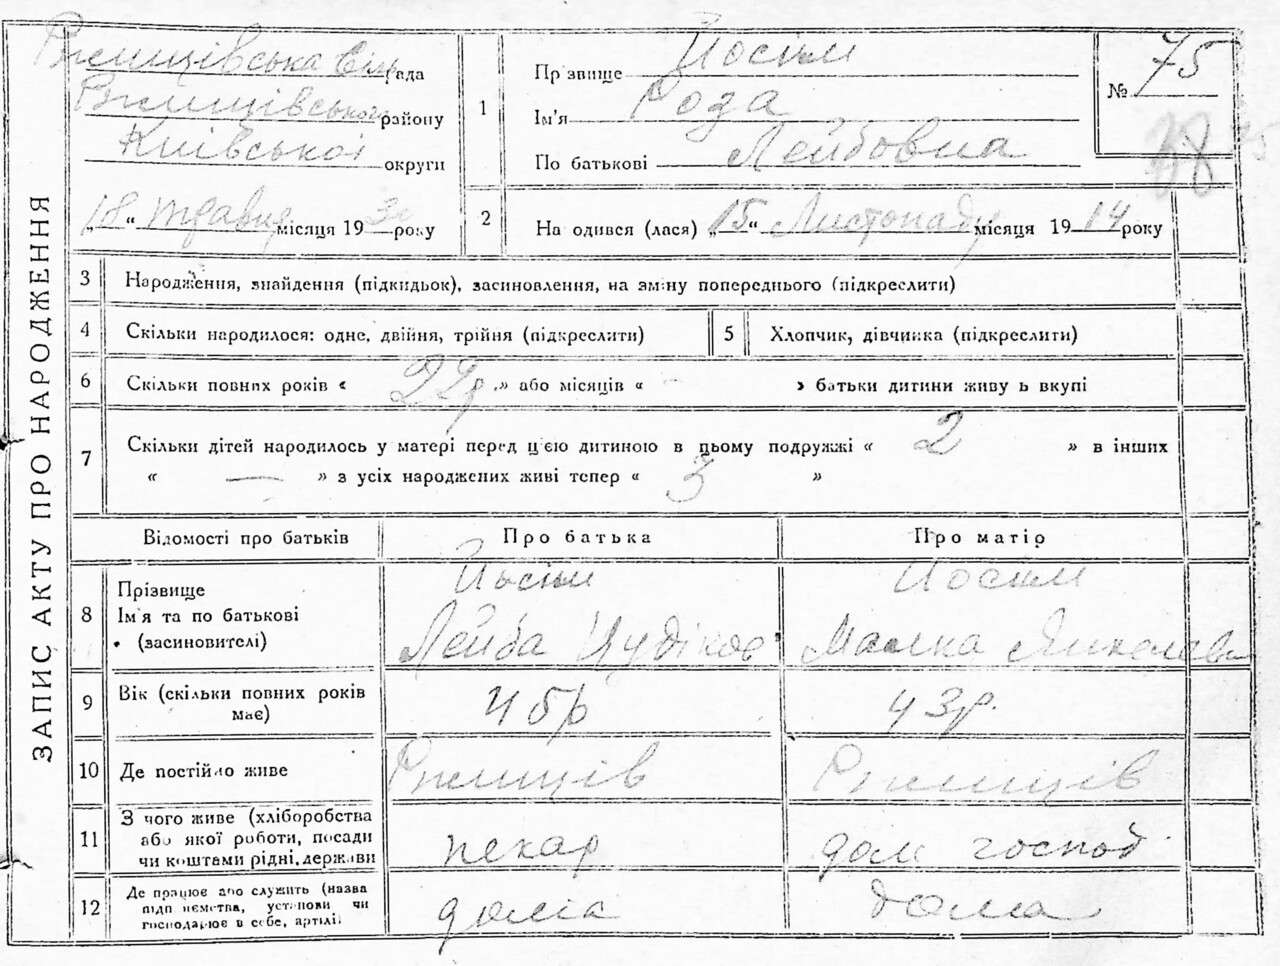 ЗАПИС АКТУ ПРО НАРОДЖЕННЯ
Ржищівська Сільрада
Ржищівського району
Київської округи
„18“ травня місяця 1930 року
1
Прізвище Йосіми
Ім'я Роза
По батькові Лейбовна
№ 75
38
2
На одився (лася) „15“ Листопаду місяця 1914 року
3 Народження, знайдення (підкидьок), засиновлення, на зміну попереднього (підкреслити)
4 Скільки народилося: одне, двійня, трійня (підкреслити) 5 Хлопчик, дівчинка (підкреслити)
6 Скільки повних років « 22р. » або місяців « — » батьки дитини живу ь вкупі
7 Скільки дітей народилось у матері перед цією дитиною в цьому подружжі « 2 » в інших
« — » з усіх народжених живі тепер « 3 »
Відомості про батьків Про батька Про матір
8 Прізвище
Ім'я та по батькові
(засиновителі)
Йосіми
Лейба Иудіков
Йосіми
Малка Янкелевн
9 Вік (скільки повних років
має)
46р 43р.
10 Де постійно живе Ржищів Ржищів
11 З чого живе (хліборобства
або якої роботи, посади
чи коштами рідні, держави
пекар дом господ
12 Де працює або служить (назва
підп иємства, установи чи
господарює в себе, артілі)
дома дома